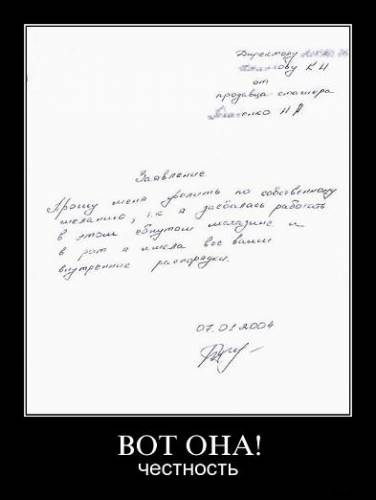 Директору
К Н
от
продавца стажёра
Н А
Заявление
Прошу меня уволить по собственному
желанию, т.к я заебалась работать
в этом ебнутом магазине и
в рот я имела все ваши
внутренние распорядки.
07.01 2004
ВОТ ОНА!
честность